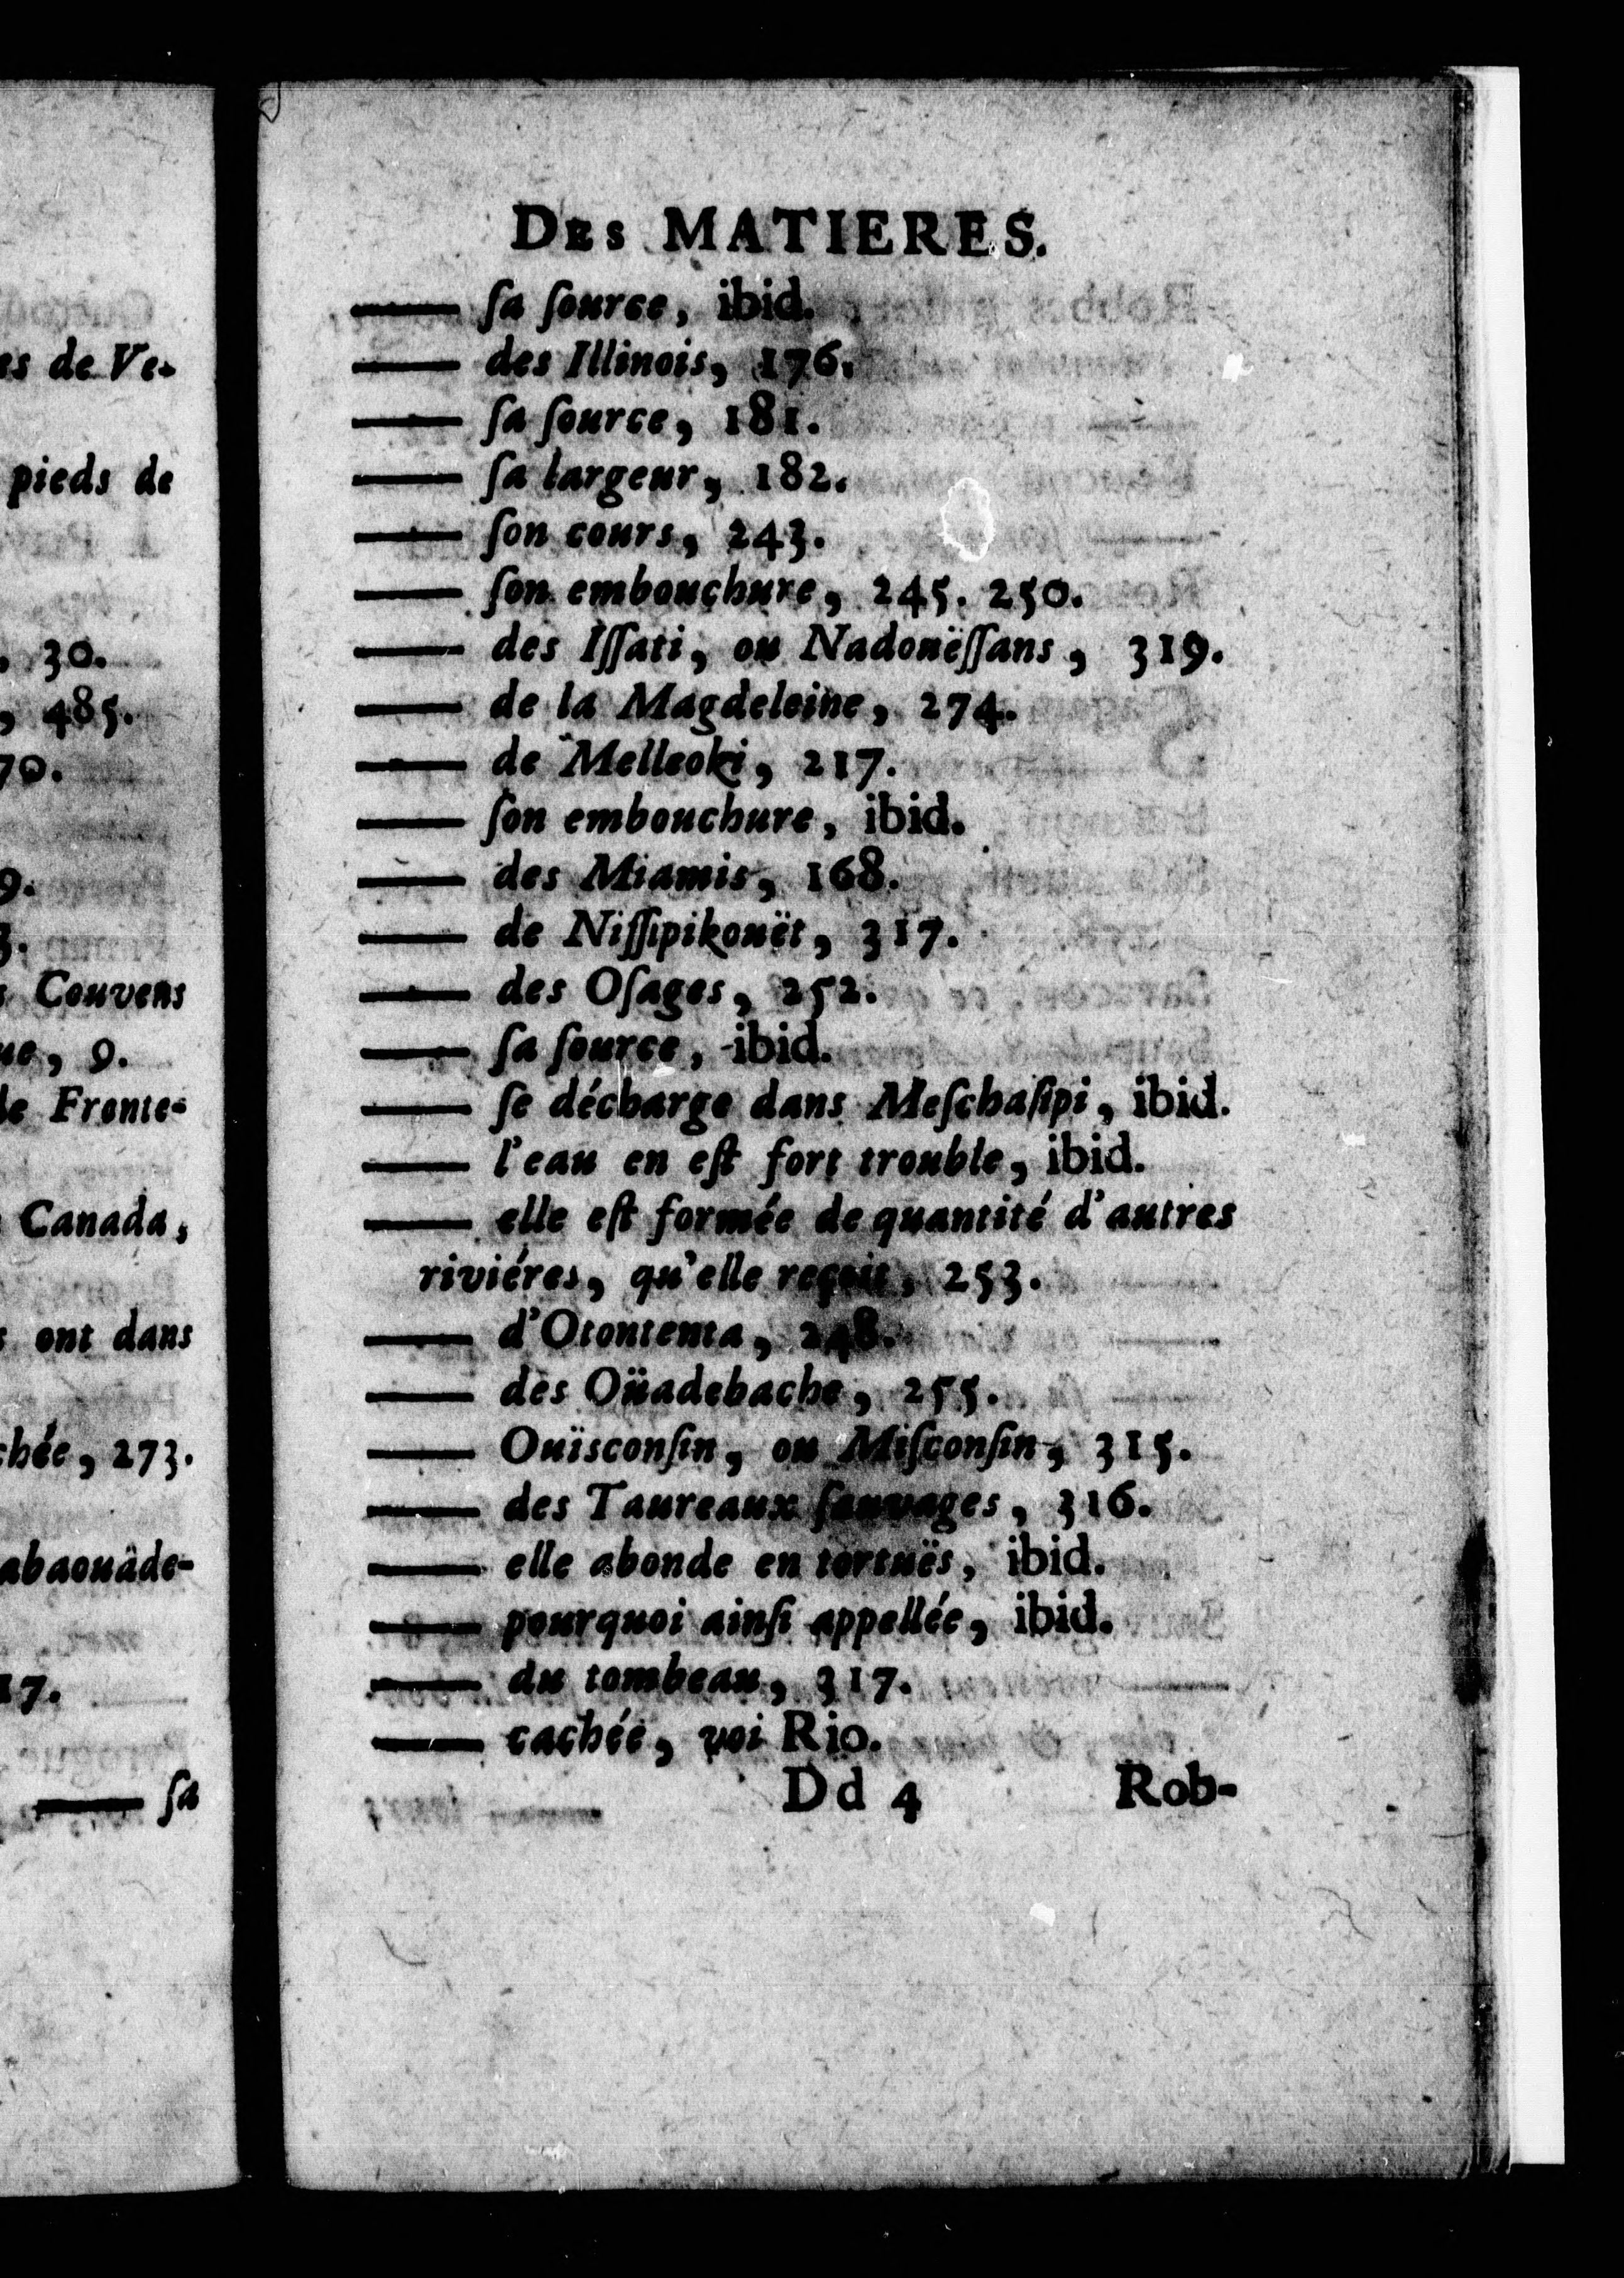 es de Ve-
pieds de
, 30.
, 485.
70.
9.
3.
s Couvens
ue, 9.
de Fronte-
Canada,
s ont dans
chée, 273.
abaouâde-
17.
—— ſa
DES MATIERES.
—— ſa ſource, ibid.
—— des Illinois, 176.
—— ſa ſource, 181.
—— ſa largeur, 182.
—— ſon cours, 243.
—— ſon embouchure, 245. 250.
—— des Iſſati, ou Nadouëſſans, 319.
—— de la Magdeleine, 274.
—— de Melleoki, 217.
—— ſon embouchure, ibid.
—— des Miamis, 168.
—— de Niſſipikouët, 317.
—— des Oſages, 252.
—— ſa ſource, ibid.
—— ſe décharge dans Meſchaſipi, ibid.
—— l'eau en eſt fort trouble, ibid.
—— elle eſt formée de quantité d'autres
riviéres, qu'elle reçoit, 253.
—— d'Otontenta, 248.
—— des Oüadebache, 255.
—— Ouïsconſin, ou Miſconſin, 315.
—— des Taureaux ſauvages, 316.
—— elle abonde en tortuës, ibid.
—— pourquoi ainſi appellée, ibid.
—— du tombeau, 317.
—— cachée, voi Rio.
Dd 4 Rob-